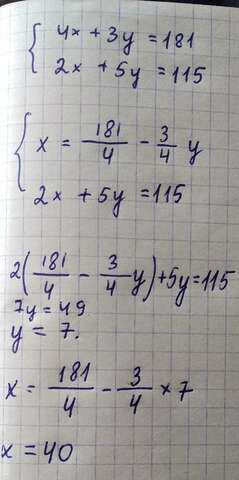 4x + 3y = 181
2x + 5y = 115
x = 181/4 - 3/4 y
2x + 5y = 115
2(181/4 - 3/4 y) + 5y = 115
7y = 49
y = 7.
x = 181/4 - 3/4 × 7
x = 40